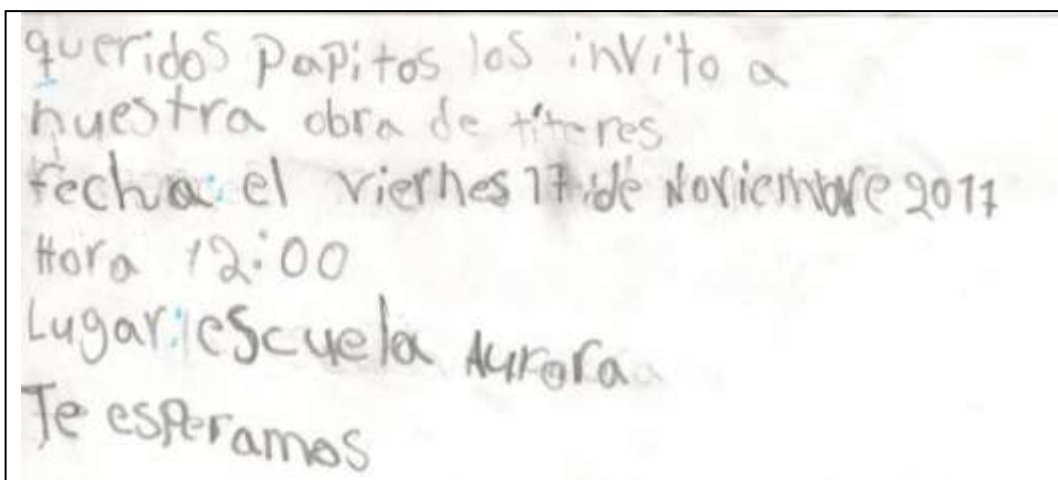 queridos Papitos los invito a
nuestra obra de títeres
fecha: el viernes 17 de Noviembre 2017
Hora 12:00
Lugar: escuela Aurora
Te esperamos